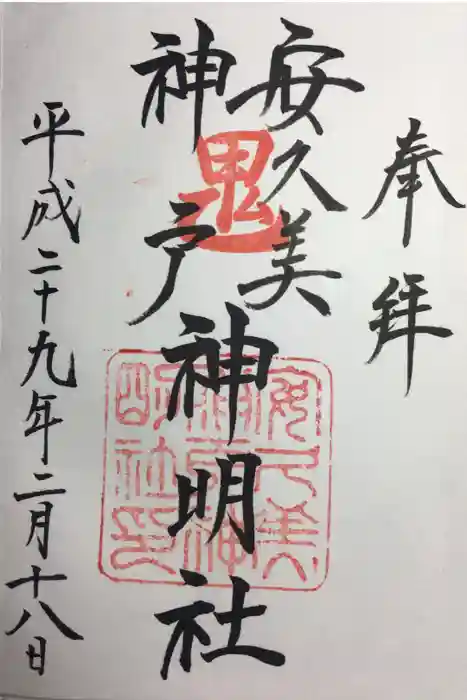 奉拝
安久美
神戸
神明社
鬼
安久美神戸神明社印
平成二十九年二月十八日